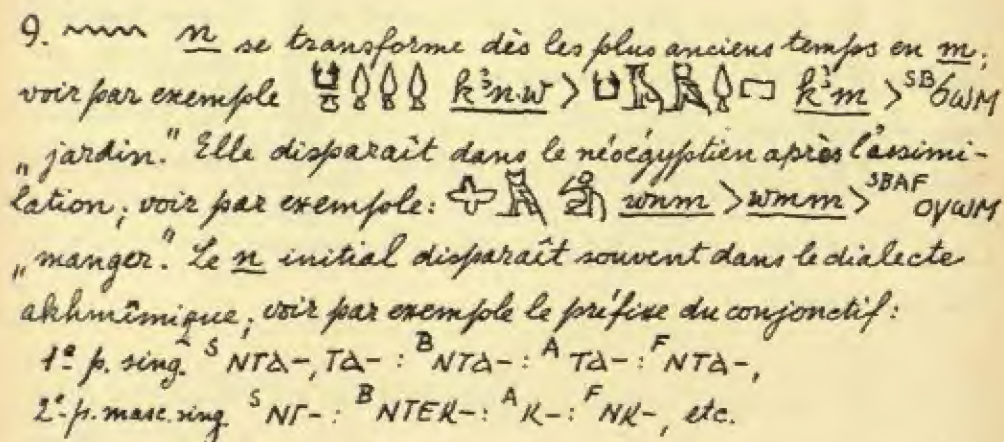 9. 𓈖 n se transforme dès les plus anciens temps en m;
voir par exemple k³n·w > k³m > ˢᴮϭⲱⲙ
„jardin." Elle disparaît dans le néoégyptien après l'assimi-
lation; voir par exemple: wnm > wmm > ˢᴮᴬꟳ ⲟⲩⲱⲙ
„manger." Le n initial disparaît souvent dans le dialecte
akhmîmique; voir par exemple le préfixe du conjonctif:
1ᵉ p. sing. ˢ ⲛⲧⲁ-, ⲧⲁ- : ᴮ ⲛⲧⲁ- : ᴬ ⲧⲁ- : ꟳ ⲛⲧⲁ-,
2ᵉ p. masc. sing. ˢ ⲛⲅ- : ᴮ ⲛⲧⲉⲕ- : ᴬ ⲕ- : ꟳ ⲛⲕ-, etc.